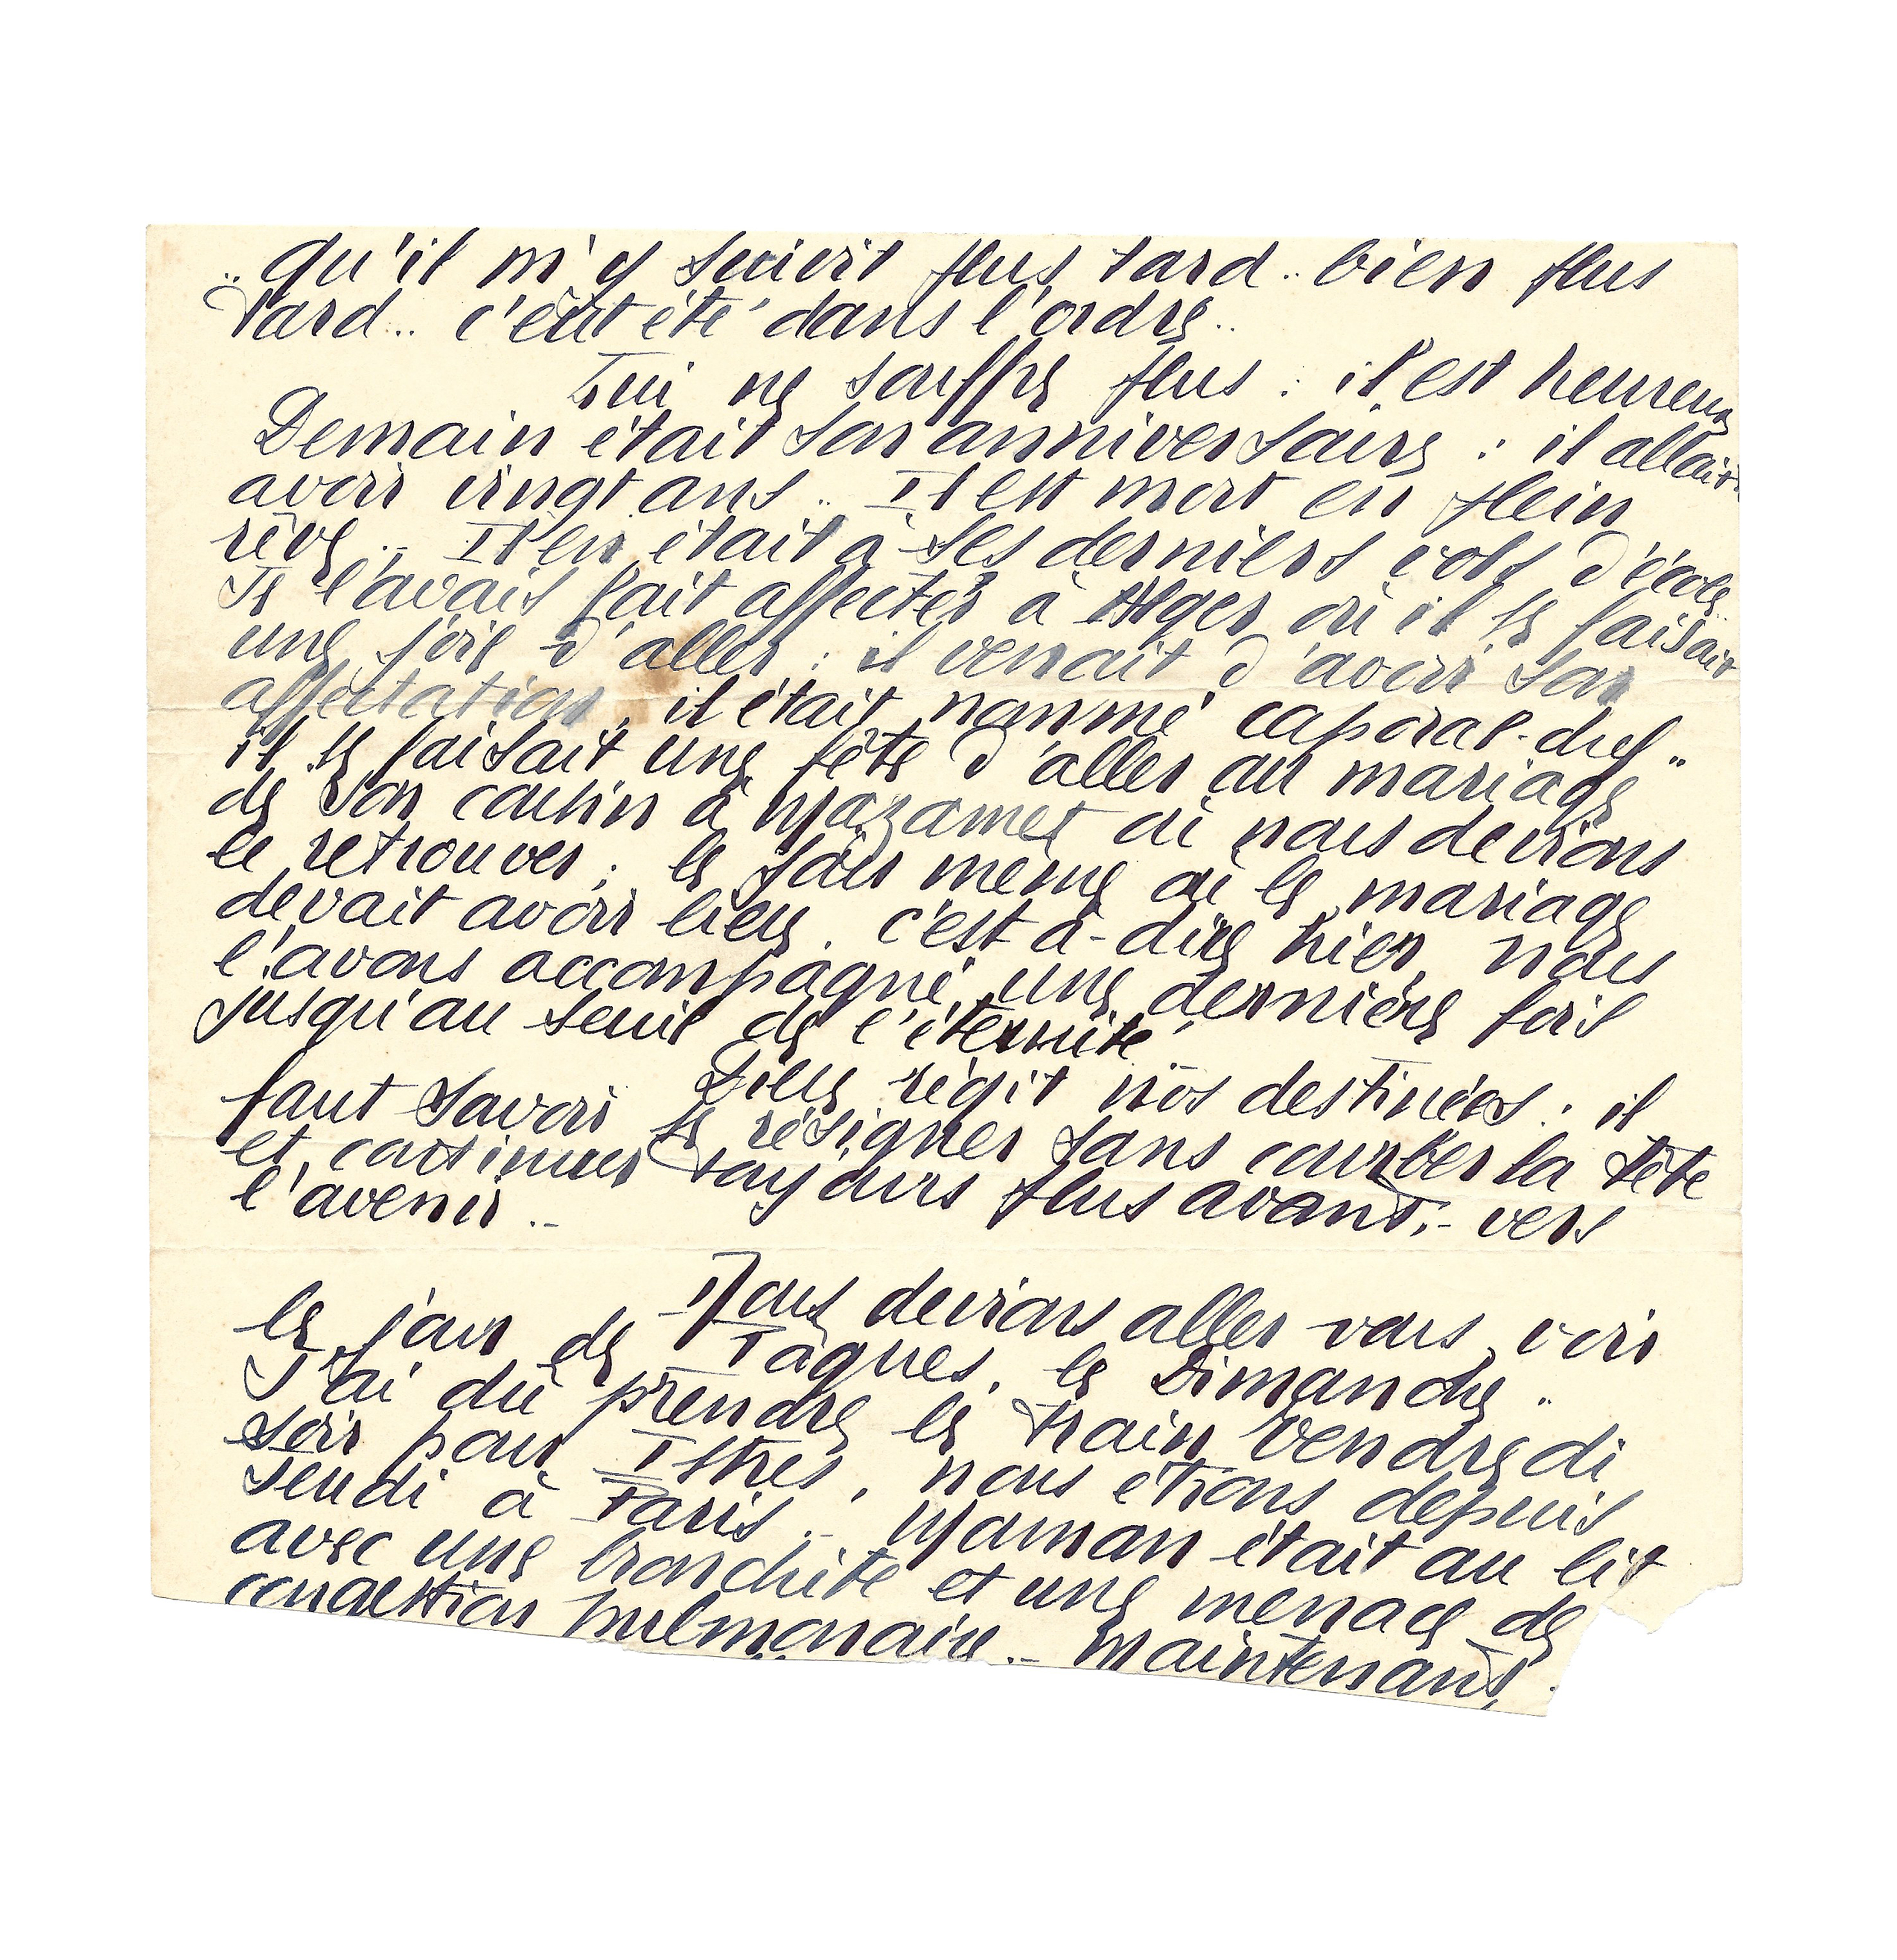 .. qu'il m'y suivit plus tard.. bien plus
tard.. c'eût été dans l'ordre..
Lui ne souffre plus : il est heureux
Demain était son anniversaire : il allait
avoir vingt ans.. Il est mort en plein
rêve.. Il en était à ses derniers vols d'école..
Je l'avais fait affecter à Alger où il se faisait
une joie d'aller : il venait d'avoir son
affectation, il était nommé caporal-chef..
il se faisait une fête d'aller au mariage
de son cousin à Mazamet où nous devions
le retrouver ; le jour même où le mariage
devait avoir lieu, c'est-à-dire hier, nous
l'avons accompagné une dernière fois
jusqu'au seuil de l'éternité.
Dieu régit nos destinées : il
faut savoir se résigner sans courber la tête
et continuer toujours plus avant.- vers
l'avenir..-
Nous devions aller vous voir
le jour de Pâques, le Dimanche..
J'ai dû prendre le train Vendredi
soir pour Istres, nous étions depuis
Jeudi à Paris.- Maman était au lit
avec une bronchite et une menace de
congestion pulmonaire.- Maintenant,